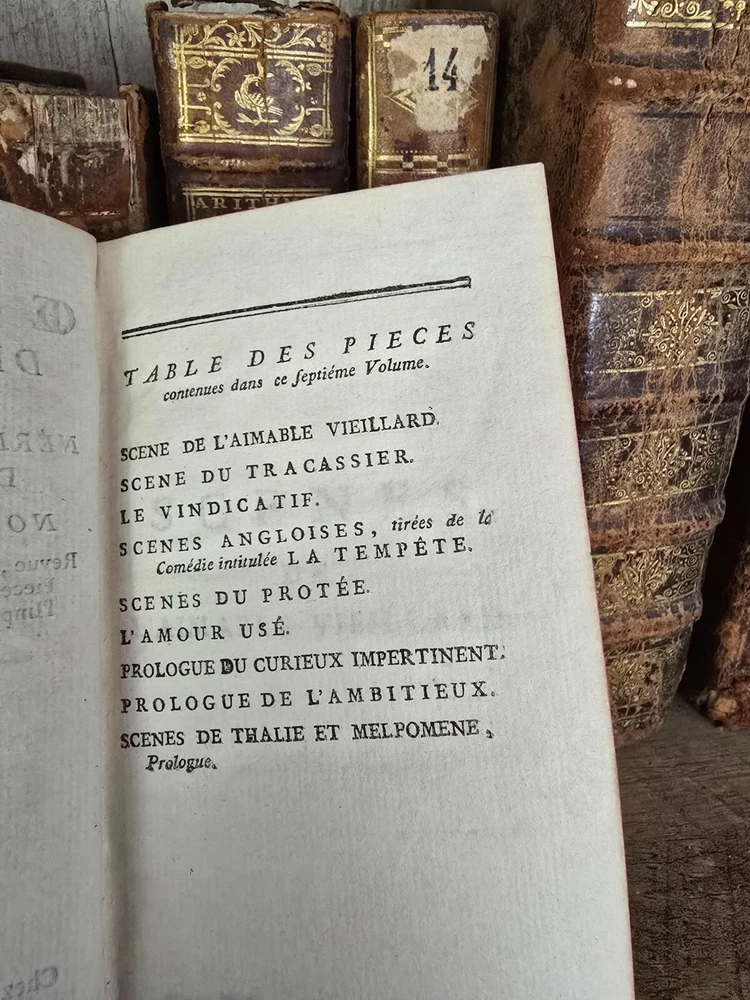 14
ARITHM
TABLE DES PIECES
contenues dans ce septiéme Volume.
SCENE DE L'AIMABLE VIEILLARD.
SCENE DU TRACASSIER.
LE VINDICATIF.
SCENES ANGLOISES, tirées de la
Comédie intitulée LA TEMPÊTE.
SCENES DU PROTÉE.
L'AMOUR USÉ.
PROLOGUE DU CURIEUX IMPERTINENT.
PROLOGUE DE L'AMBITIEUX.
SCENES DE THALIE ET MELPOMENE,
Prologue.